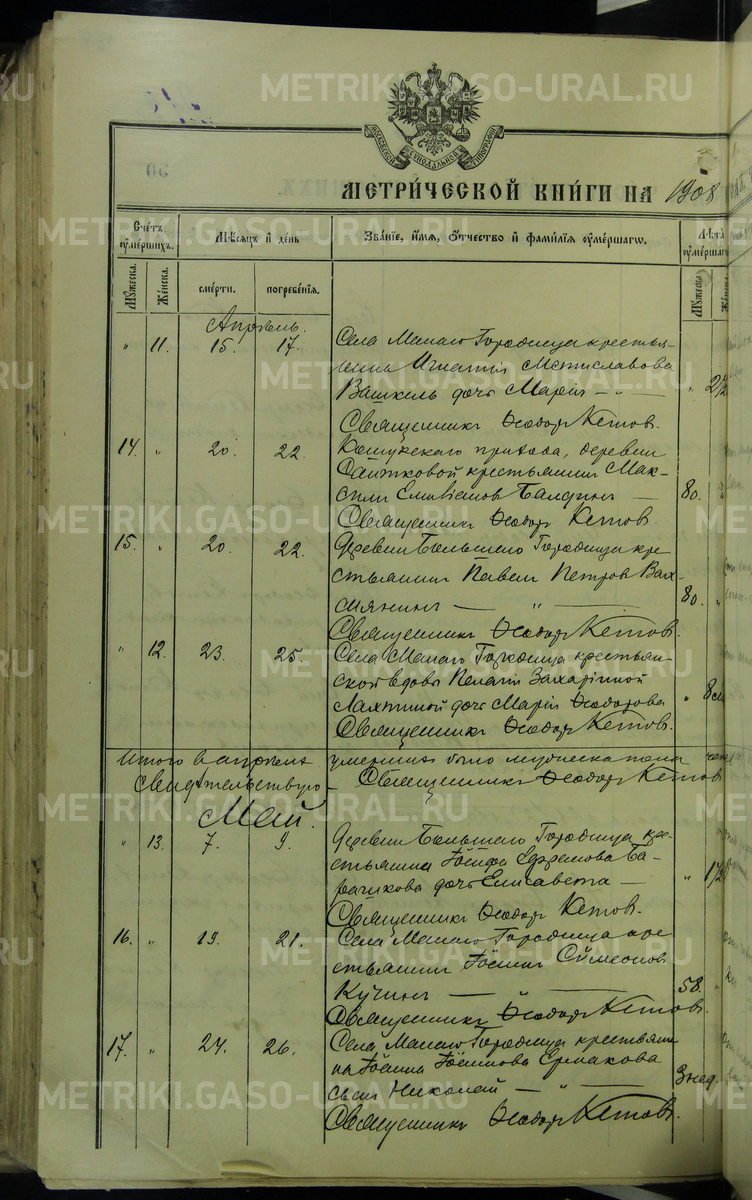 МОСКОВСКОЙ СѴНОДАЛЬНОЙ ТИПОГРАФІИ
МЕТРИЧЕСКОЙ КНИГИ НА 1908
Счетъ умершихъ.
Мѣсяцъ и день
Званіе, имя, отчество и фамилія умершаго.
Лѣта умершаг
Мужеска.
Женска.
смерти.
погребенія.
Мужеска
Женск
Апрѣль.
" 11. 15. 17. Села Малаго Городища крестья-
нина Игнатія Мстиславова
Вашкель дочь Марія — " — " 2½
Священникъ Ѳеодоръ Кетовъ.
14. " 20. 22. Кошукскаго прихода, деревни
Сайтковой крестьянинъ Мак-
симъ Балдинъ — 80.
Священникъ Ѳеодоръ Кетовъ.
15. " 20. 22. Деревни Большаго Городища кре
стьянинъ Павелъ Петровъ Вах-
мянинъ — " — 80. "
Священникъ Ѳеодоръ Кетовъ.
" 12. 23. 25. Села Малаго Городища крестьян-
ской вдовы Пелагіи Захаріиной
Лахтиной дочь Марія Ѳеодорова " 8
Священникъ Ѳеодоръ Кетовъ.
Итого въ апрѣлѣ умершихъ было мужеска пола
Свидѣтельствую — Священникъ Ѳеодоръ Кетовъ
Май.
" 13. 7. 9. Деревни Большаго Городища кре-
стьянина Іосифа Ефремова Ба-
рашкова дочь Елисавета — " 1½
Священникъ Ѳеодоръ Кетовъ.
16. " 19. 21. Села Малаго Городища кре
стьянинъ Іоаннъ Сѵмеоновъ
Кучинъ — " — 58. "
Священникъ Ѳеодоръ Кетовъ.
17. " 24. 26. Села Малаго Городища крестьяни
на Іоанна Іоаннова Ермакова
сынъ Николай — " — 3 нед.
Священникъ Ѳеодоръ Кетовъ.
METRIKI.GASO-URAL.RU